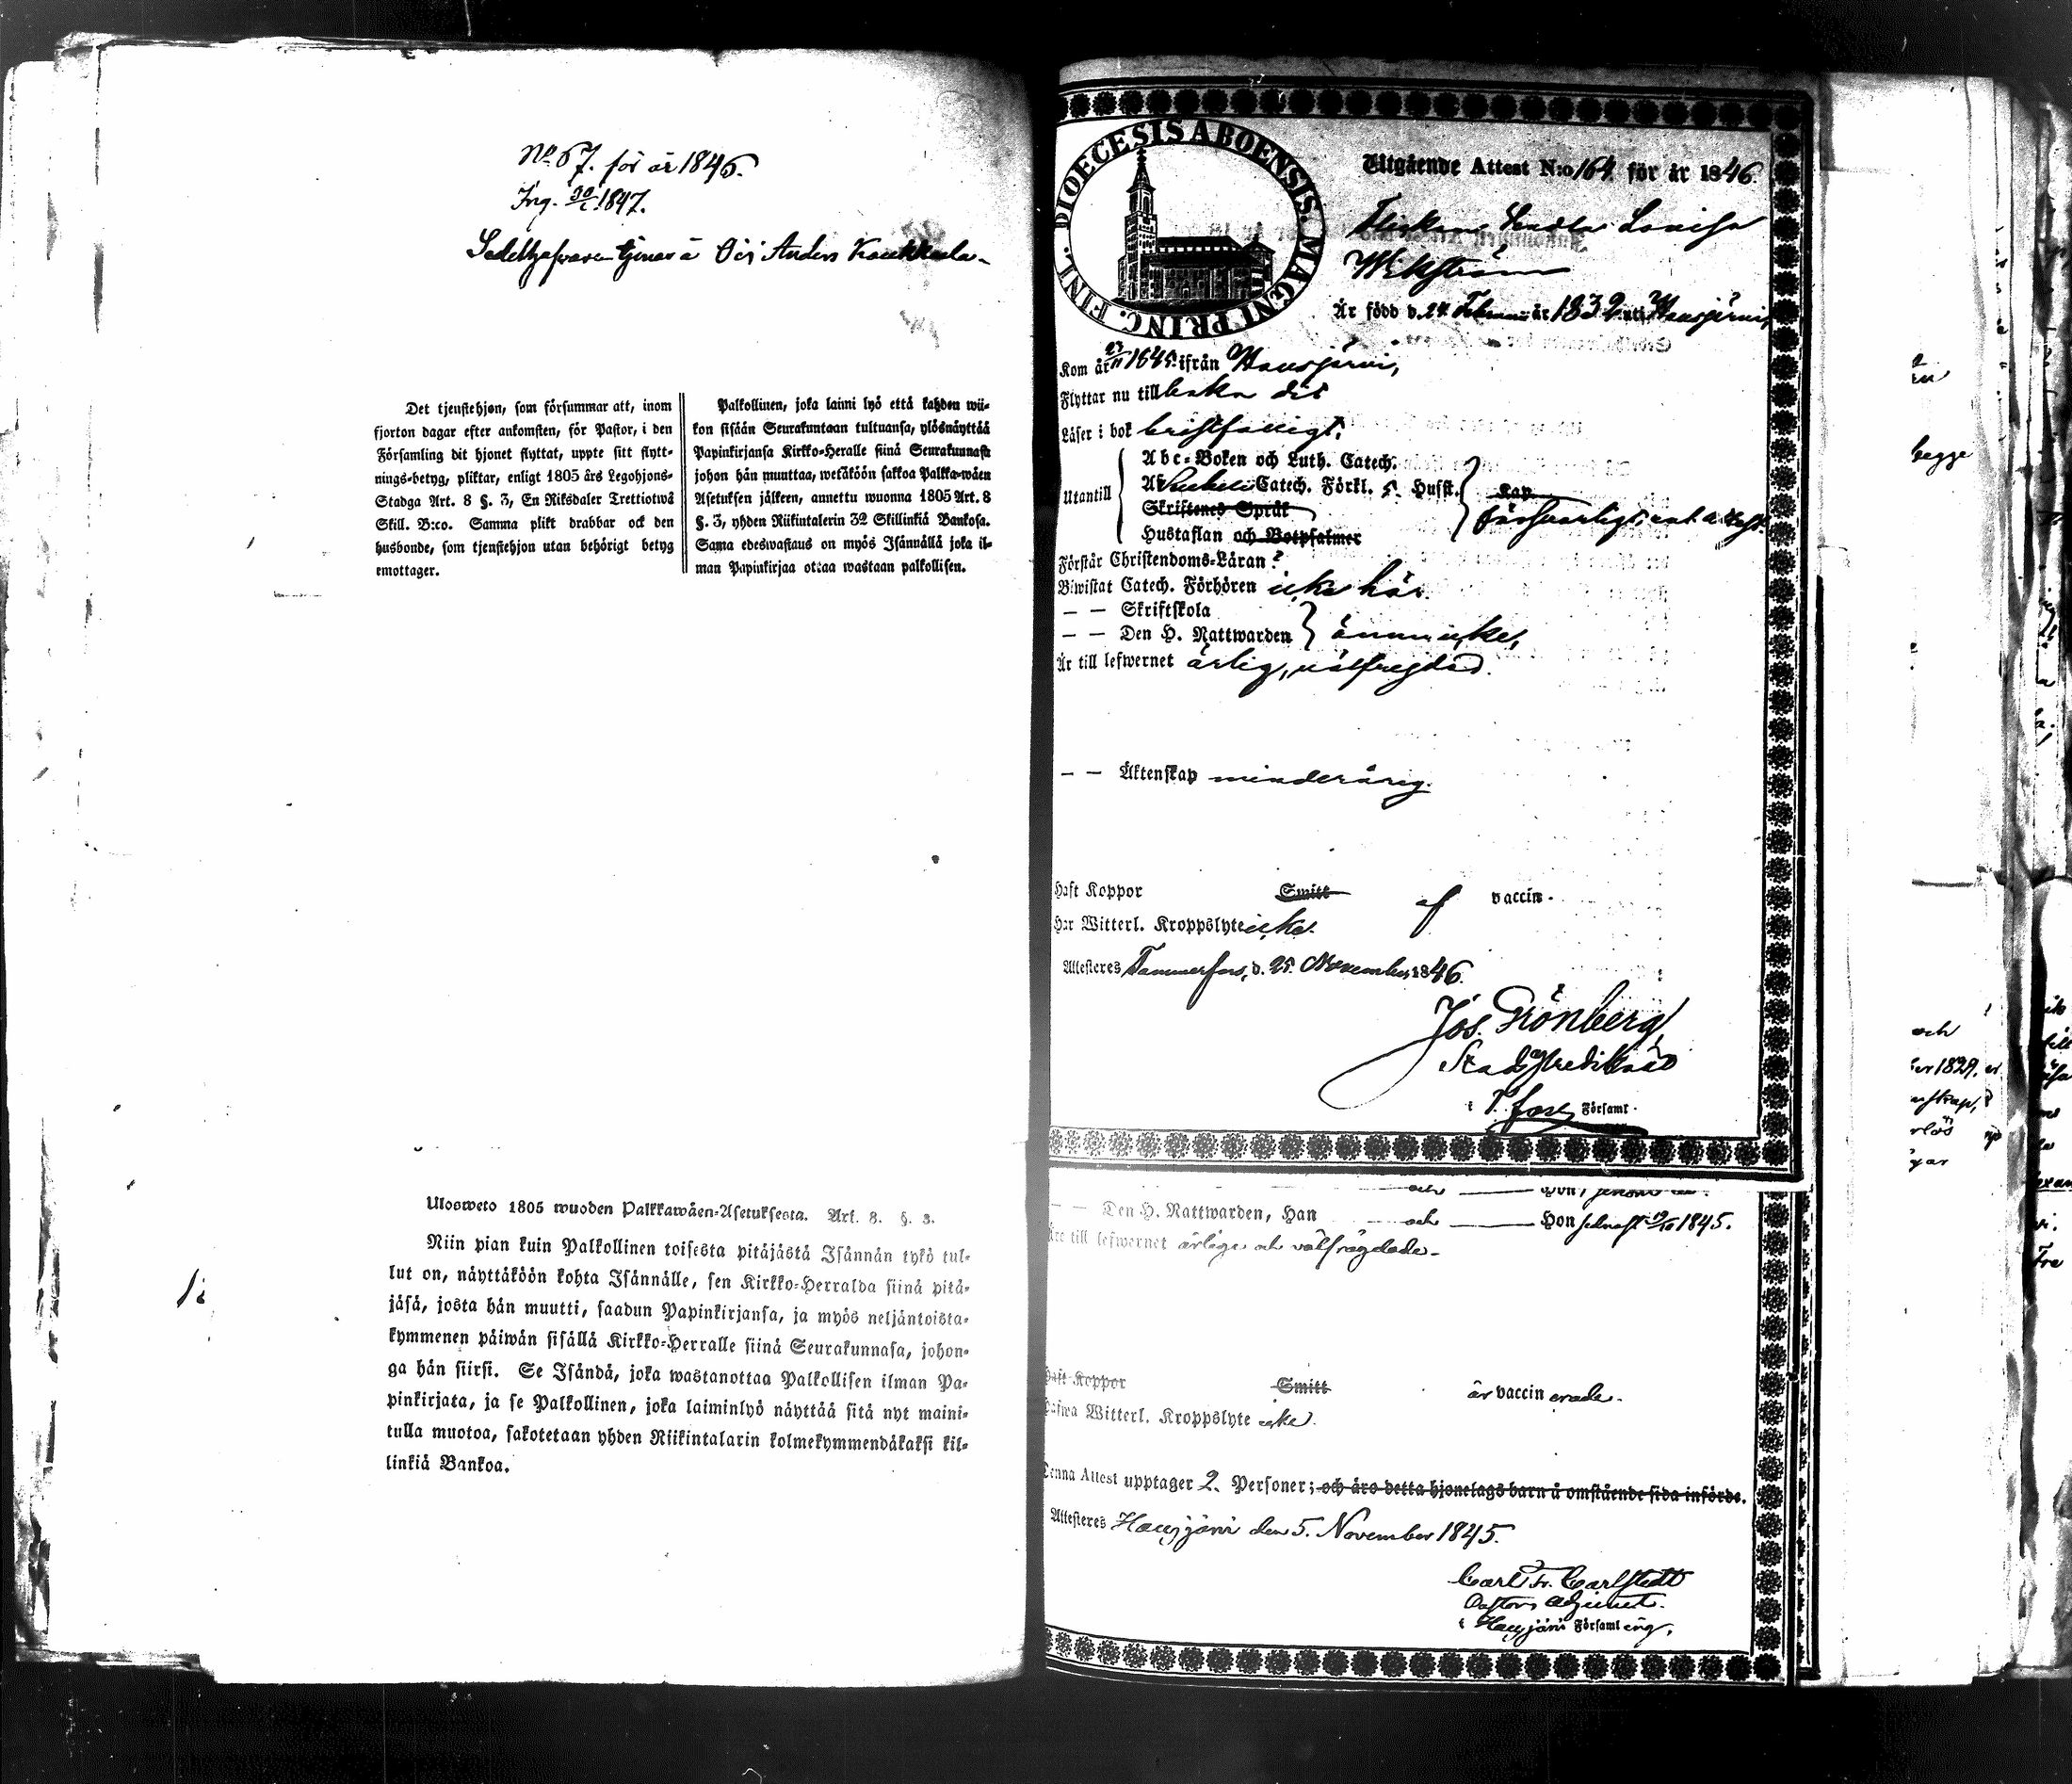 No 67. för år 1846.
Ing. 30/1 1847.
tjenar å Oij Anders Kaukkala
Det tjenstehjon, som försummar att, inom
fjorton dagar efter ankomsten, för Pastor, i den
Församling dit hjonet flyttat, uppte sitt flytt-
nings-betyg, pliktar, enligt 1805 års Legohjons-
Stadga Art. 8 §. 3, En Riksdaler Trettiotwå
Skill. B:co. Samma plikt drabbar ock den
husbonde, som tjenstehjon utan behörigt betyg
emottager.
Palkollinen, joka laimi lyö että kahden wii-
kon sisään Seurakuntaan tultuansa, ylösnäyttää
Papinkirjansa Kirkko-Heralle siinä Seurakunnasa
johon hän muuttaa, wetäköön sakkoa Palkka-wäen
Asetuksen jälkeen, annettu wuonna 1805 Art. 8
§. 3, yhden Riikintalerin 32 Skillinkiä Bankosa.
Sama edeswastaus on myös Isännällä joka il-
man Papinkirjaa ottaa wastaan palkollisen.
Ulosweto 1805 wuoden Palkkawäen-Asetuksesta. Art. 8. §. 3.
Niin pian kuin Palkollinen toisesta pitäjästä Isännän tykö tul-
lut on, näyttäköön kohta Isännälle, sen Kirkko-Herralda siinä pitä-
jäsä, josta hän muutti, saadun Papinkirjansa, ja myös neljäntoista-
kymmenen päiwän sisällä Kirkko-Herralle siinä Seurakunnasa, johon-
ga hän siirsi. Se Isändä, joka wastanottaa Palkollisen ilman Pa-
pinkirjata, ja se Palkollinen, joka laiminlyö näyttää sitä nyt maini-
tulla muotoa, sakotetaan yhden Riikintalarin kolmekymmendäkaksi kil-
linkiä Bankoa.
DIOECESIS ABOENSIS. MAGNI PRINC. FINL.
Utgående Attest N:o 164 för år 1846.
Flickan Lovisa
Wikström
Är född d. 24 Februarii år 1832 uti Hausjärvi
Kom år 23/11 1845 ifrån Hausjärvi,
Flyttar nu tillbaka dit
Läser i bok bristfälligt,
Utantill
Abc-Boken och Luth. Catech.
Af Catech. Förkl. 5. Hufst.
Skriftenes Språk
Hustaflan och Botpsalmer
Kap.
försvarligt,
Förstår Christendoms-Läran ?
Biwistat Catech. Förhören icke här.
— — Skriftskola
— — Den H. Nattwarden ännu icke,
Är till lefwernet ärlig, välfregdad.
— — Äktenskap minderårig.
Haft Koppor Smitt af vaccin.
Har Witterl. Kroppslyte icke.
Attesteres Tammerfors, d. 25. November 1846.
Jos. Grönberg
Stadspredikant
i T.fors Församl.
— — Den H. Nattwarden, Han — och — Hon senast 19/10 1845.
Äro till lefwernet ärlige och välfrägdade.
Haft Koppor Smitt är vaccinerade.
Hafwa Witterl. Kroppslyte icke.
Denna Attest upptager 2. Personer; och äro detta hjonelags barn å omstående sida införde.
Attesteres Hausjärvi den 5. November 1845.
Carl Fr. Carlstedt
Pastors Adjunct.
i Hausjärvi Församling.